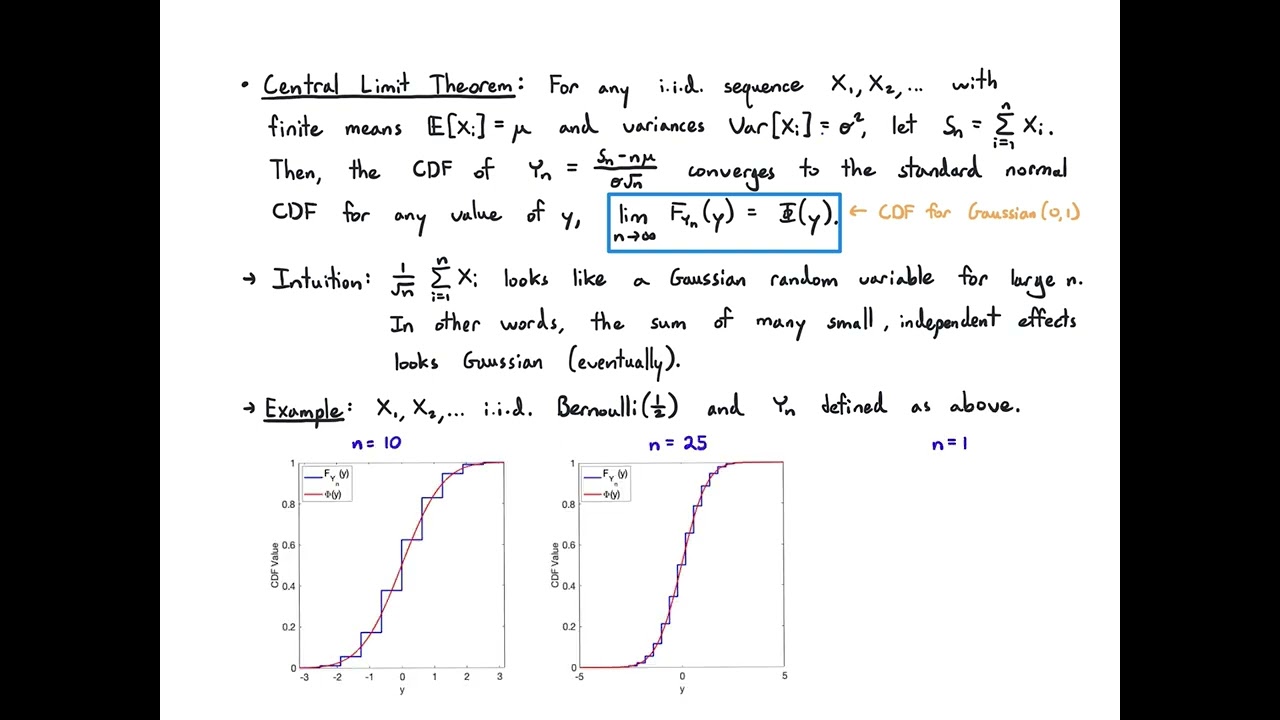 • Central Limit Theorem: For any i.i.d. sequence X₁, X₂, ... with
finite means 𝔼[Xᵢ] = μ and variances Var[Xᵢ] = σ², let Sₙ = Σᵢ₌₁ⁿ Xᵢ.
Then, the CDF of Yₙ = (Sₙ - nμ)/(σ√n) converges to the standard normal
CDF for any value of y, lim n→∞ F_Yₙ(y) = Φ(y). ← CDF for Gaussian(0,1)
→ Intuition: 1/√n Σᵢ₌₁ⁿ Xᵢ looks like a Gaussian random variable for large n.
In other words, the sum of many small, independent effects
looks Gaussian (eventually).
→ Example: X₁, X₂, ... i.i.d. Bernoulli(1/2) and Yₙ defined as above.
n = 10 n = 25 n = 1
F_Yₙ(y)
Φ(y)
CDF Value
1
0.8
0.6
0.4
0.2
0
-3 -2 -1 0 1 2 3
y
F_Yₙ(y)
Φ(y)
CDF Value
1
0.8
0.6
0.4
0.2
0
-5 0 5
y